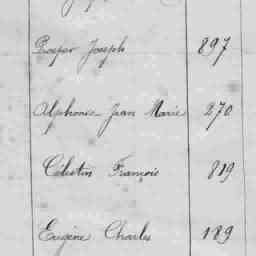 Prosper Joseph 897
Alphonse Jean Marie 270
Célestin François 819
Eugène Charles 189